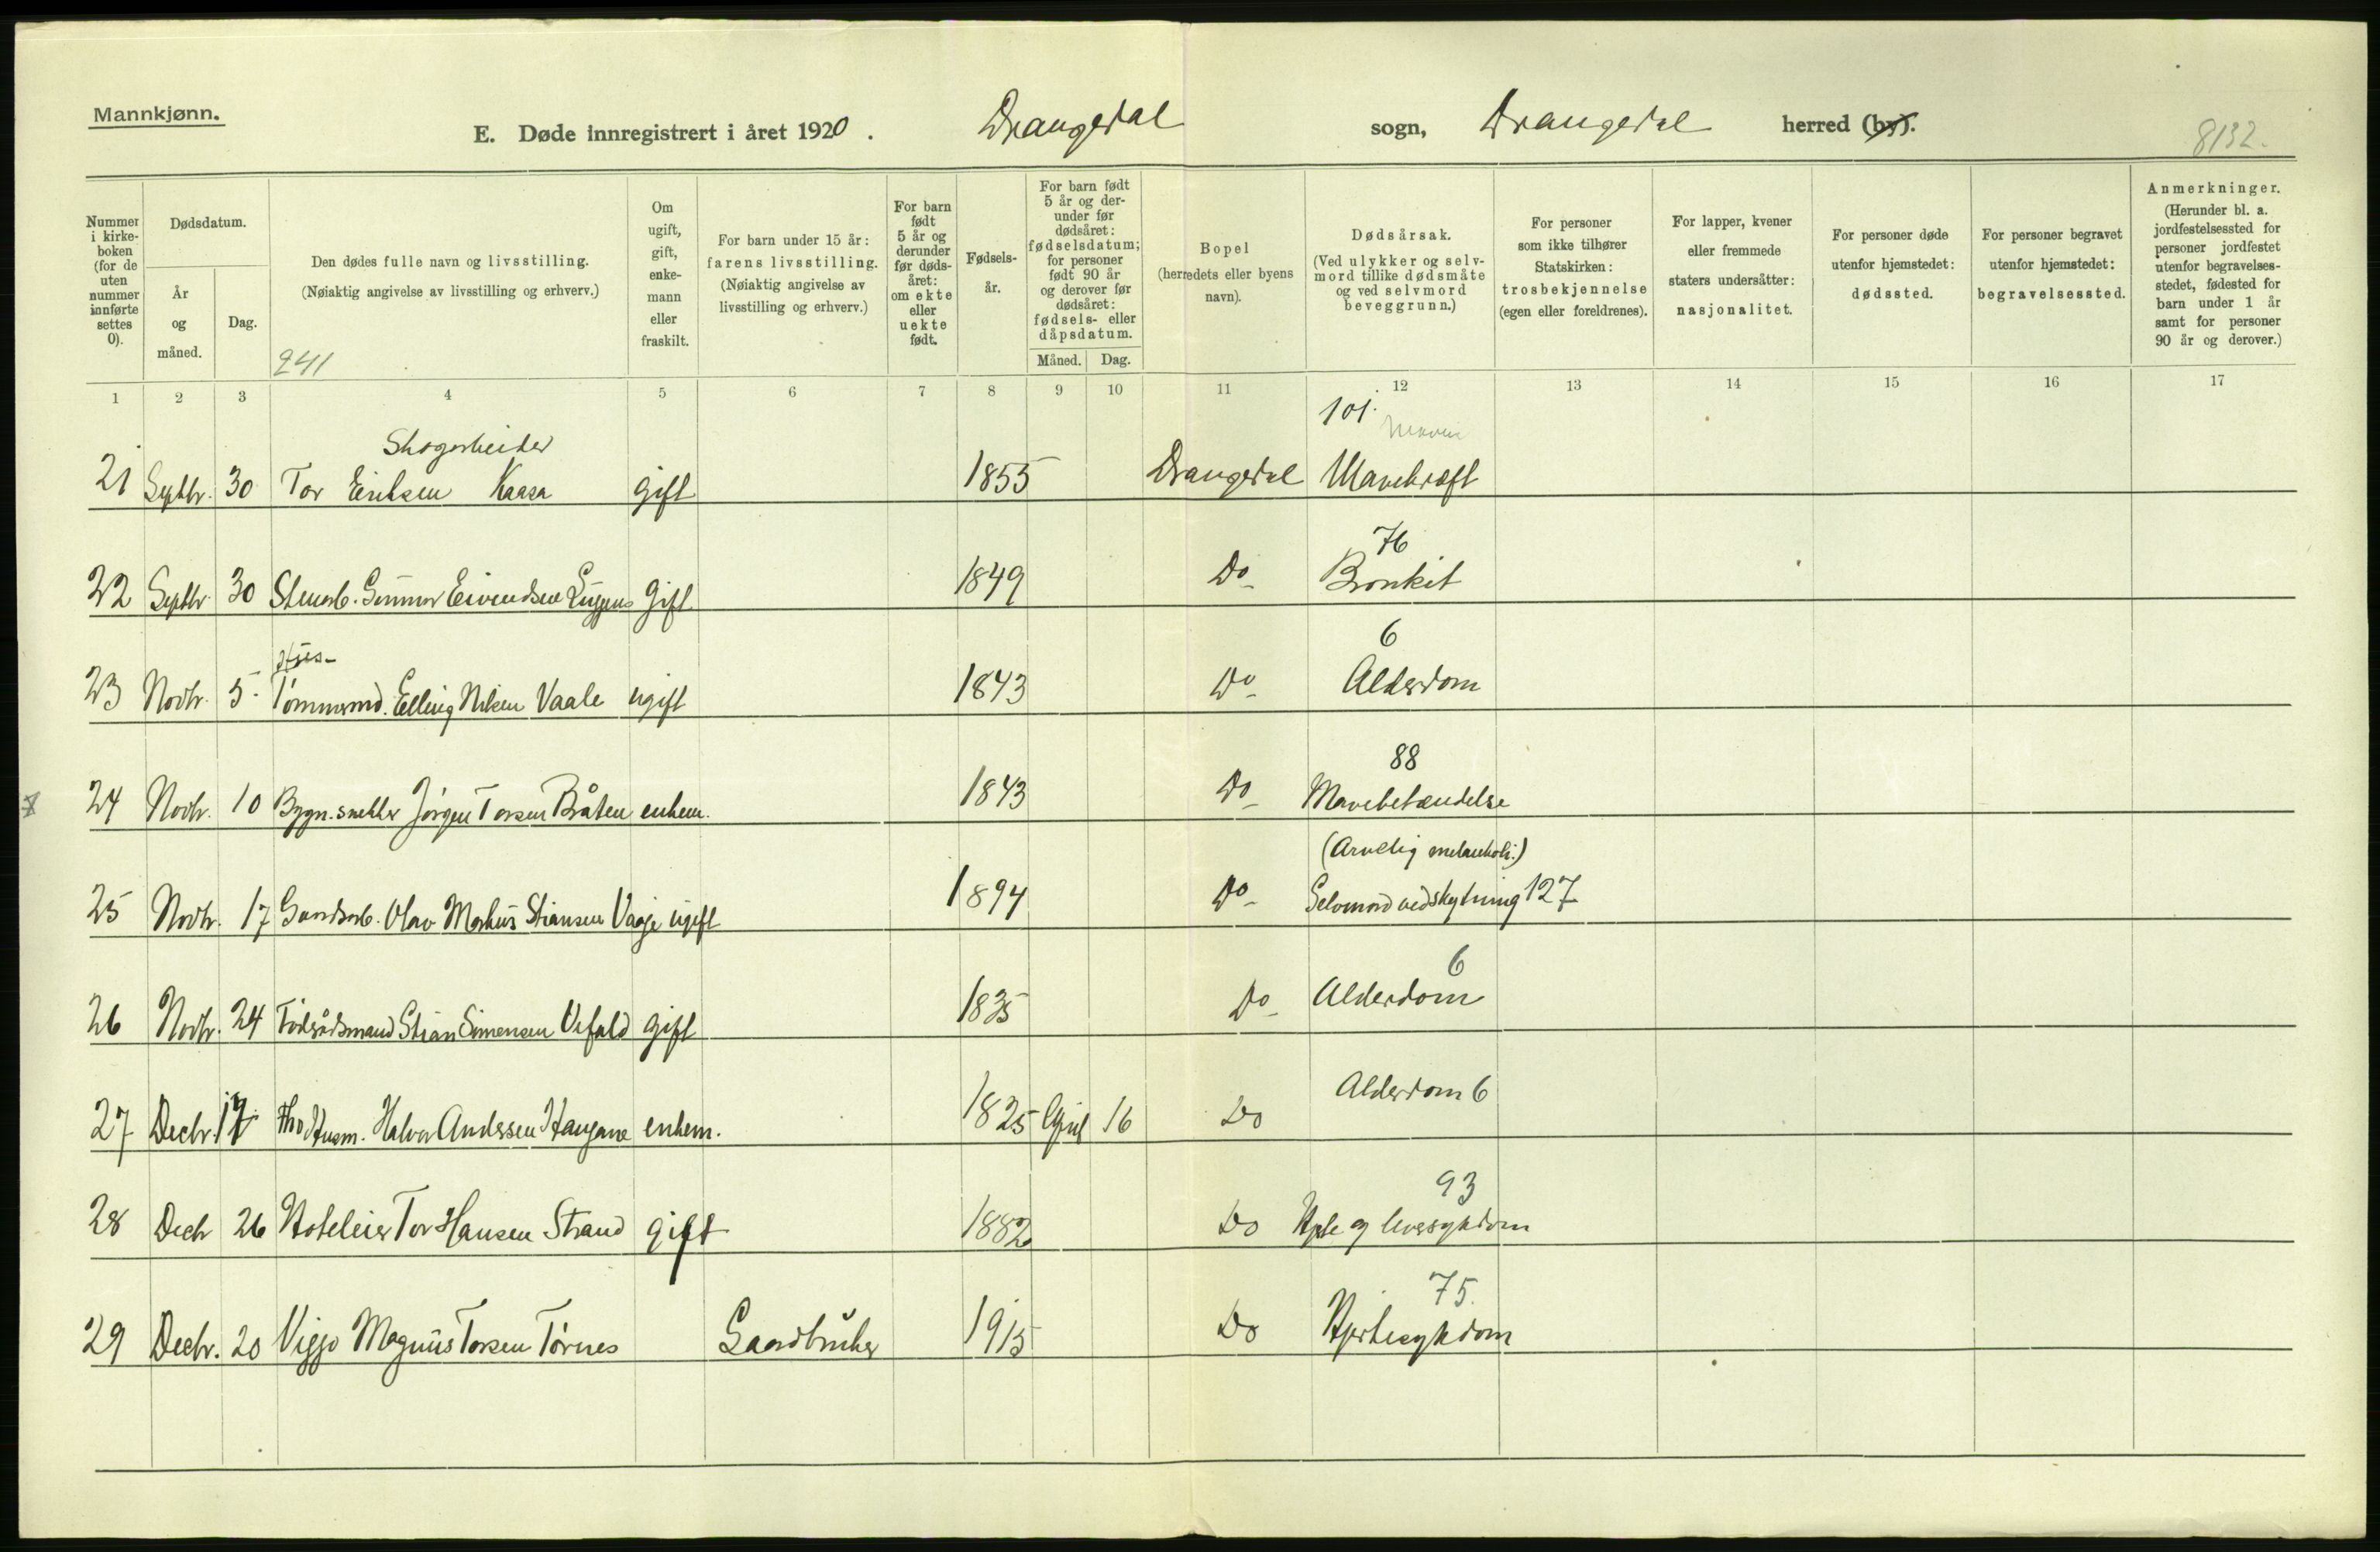 Mannkjønn.
E. Døde innregistrert i året 1920. Drangedal sogn, Drangedal herred (by).
8132.
Nummer i kirkeboken (for de uten nummer innførte settes 0).
Dødsdatum.
År og måned.
Dag.
Den dødes fulle navn og livsstilling.
(Nøiaktig angivelse av livsstilling og erhverv.)
241
Om ugift, gift, enkemann eller fraskilt.
For barn under 15 år: farens livsstilling. (Nøiaktig angivelse av livsstilling og erhverv.)
For barn født 5 år og derunder før dødsåret: om ekte eller uekte født.
Fødselsår.
For barn født 5 år og derunder før dødsåret: fødselsdatum; for personer født 90 år og derover før dødsåret: fødsels- eller dåpsdatum.
Måned. Dag.
Bopel (herredets eller byens navn).
Dødsårsak. (Ved ulykker og selvmord tillike dødsmåte og ved selvmord beveggrunn.)
For personer som ikke tilhører Statskirken: trosbekjennelse (egen eller foreldrenes).
For lapper, kvener eller fremmede staters undersåtter: nasjonalitet.
For personer døde utenfor hjemstedet: dødssted.
For personer begravet utenfor hjemstedet: begravelsessted.
Anmerkninger. (Herunder bl. a. jordfestelsessted for personer jordfestet utenfor begravelsesstedet, fødested for barn under 1 år samt for personer 90 år og derover.)
1 2 3 4 5 6 7 8 9 10 11 12 13 14 15 16 17
101.
Skogarbeider
21 Septbr. 30 Tor Eriksen Kaasa gift 1855 Drangedal Mavekræft
76
22 Septbr. 30 Gunnor Eivendsen gift 1849 Do Bronkit
Hus- 6
23 Novbr. 5 Tømmermd. Elling Nilsen Vaale ugift 1843 Do Alderdom
88
24 Novbr. 10 Bygn.snekker Jørgen Torsen Bråten enkem. 1843 Do Mavebetændelse
(Arvelig melankoli.)
25 Novbr. 17 Gaardsarb. Olav Markus Stiansen Vaaje ugift 1894 Do Selvmord ved skytning 127
6
26 Novbr. 24 Føderådsmand Stian Simensen Vefald gift 1835 Do Alderdom
27 Decbr. 17 Husm. Halvor Anderssen Haugane enkem. 1825 April 16 Do Alderdom 6
93
28 Decbr 26 Hoteleier Tor Hansen Strand gift 1882 Do og leversykdom
75.
29 Decbr. 20 Viggo Magnus Torsen Tørnes Gaardbruker 1915 Do Hjertesykdom